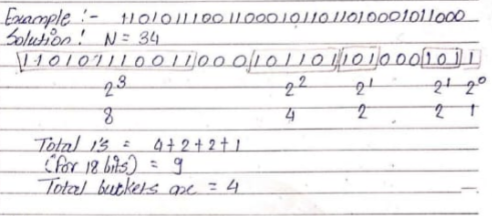 Example :- 1101011100110001011011010001011000
Solution! N = 34
1101011100110001011011010001011
2³ 2² 2¹ 2¹ 2⁰
8 4 2 2 1
Total 1's = 4+2+2+1
(for 18 bits) = 9
Total buckets are = 4